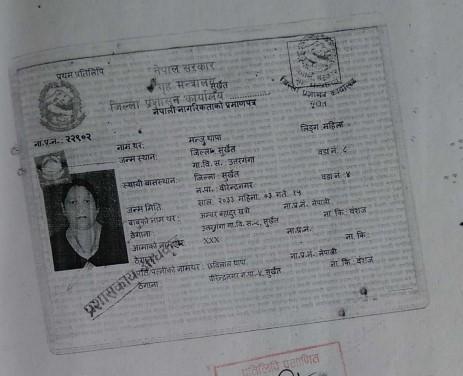 प्रथम प्रतिलिपि
नेपाल सरकार
गृह मन्त्रालय
जिल्ला प्रशासन कार्यालय सुर्खेत
नेपाली नागरिकताको प्रमाणपत्र
ना.प्र.नं.: २२९०२
लिङ्ग महिला
नाम थर: मन्जु थापा
जन्म स्थान: जिल्ला: सुर्खेत
गा.वि.स. उत्तरगंगा वडा नं. ८
स्थायी बासस्थान: जिल्ला: सुर्खेत
न.पा. वीरेन्द्रनगर वडा नं. ४
जन्म मिति: साल २०३३ महिना ०३ गते १५
बाबुको नाम थर: बहादुर ना.प्र.नं. नेपाली
ठेगाना: उत्तरगंगा गा.वि.स.-८, सुर्खेत ना. कि: वंशज
आमाको नाम थर: XXX ना.प्र.नं.
ना. कि:
पति/पत्नीको नामथर: थापा ना.प्र.नं. नेपाली
ठेगाना: वीरेन्द्रनगर न.पा.-४, सुर्खेत ना. कि: वंशज
प्रतिलिपि प्रमाणित